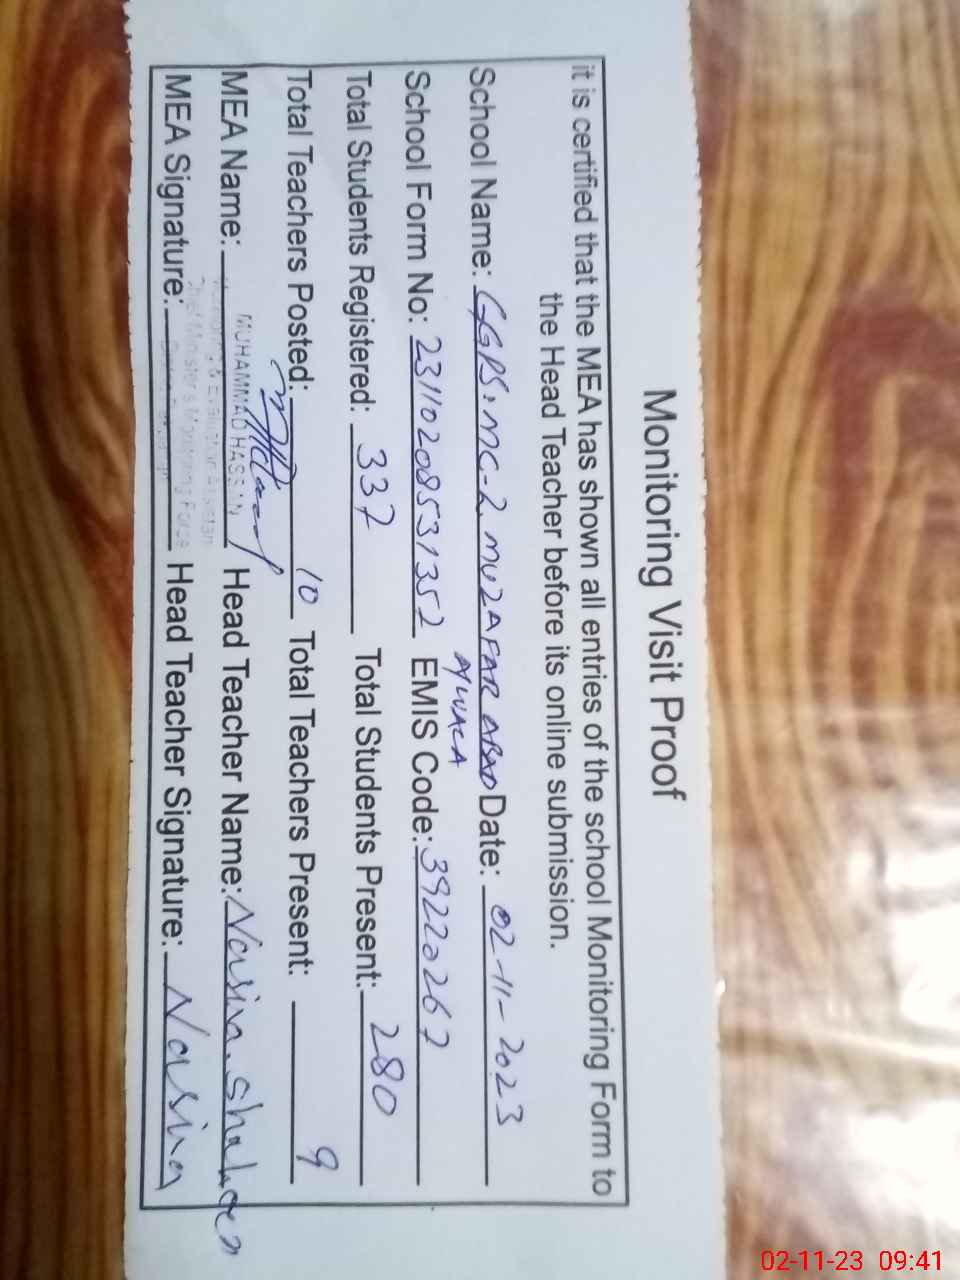 Monitoring Visit Proof
it is certified that the MEA has shown all entries of the school Monitoring Form to
the Head Teacher before its online submission.
School Name: GGPS. MC-2, MUZAFAR ABAD Date: 02-11-2023
School Form No: 23110208531352 EMIS Code: 39220267
Total Students Registered: 337 Total Students Present: 280
Total Teachers Posted: 10 Total Teachers Present: 9
MEA Name: Head Teacher Name: Nasim. Shaheen
MUHAMMAD HASSAN
Monitoring & Evaluation Assistant
Chief Minister's Monitoring Force
MEA Signature: Head Teacher Signature: Nasim
02-11-23 09:41